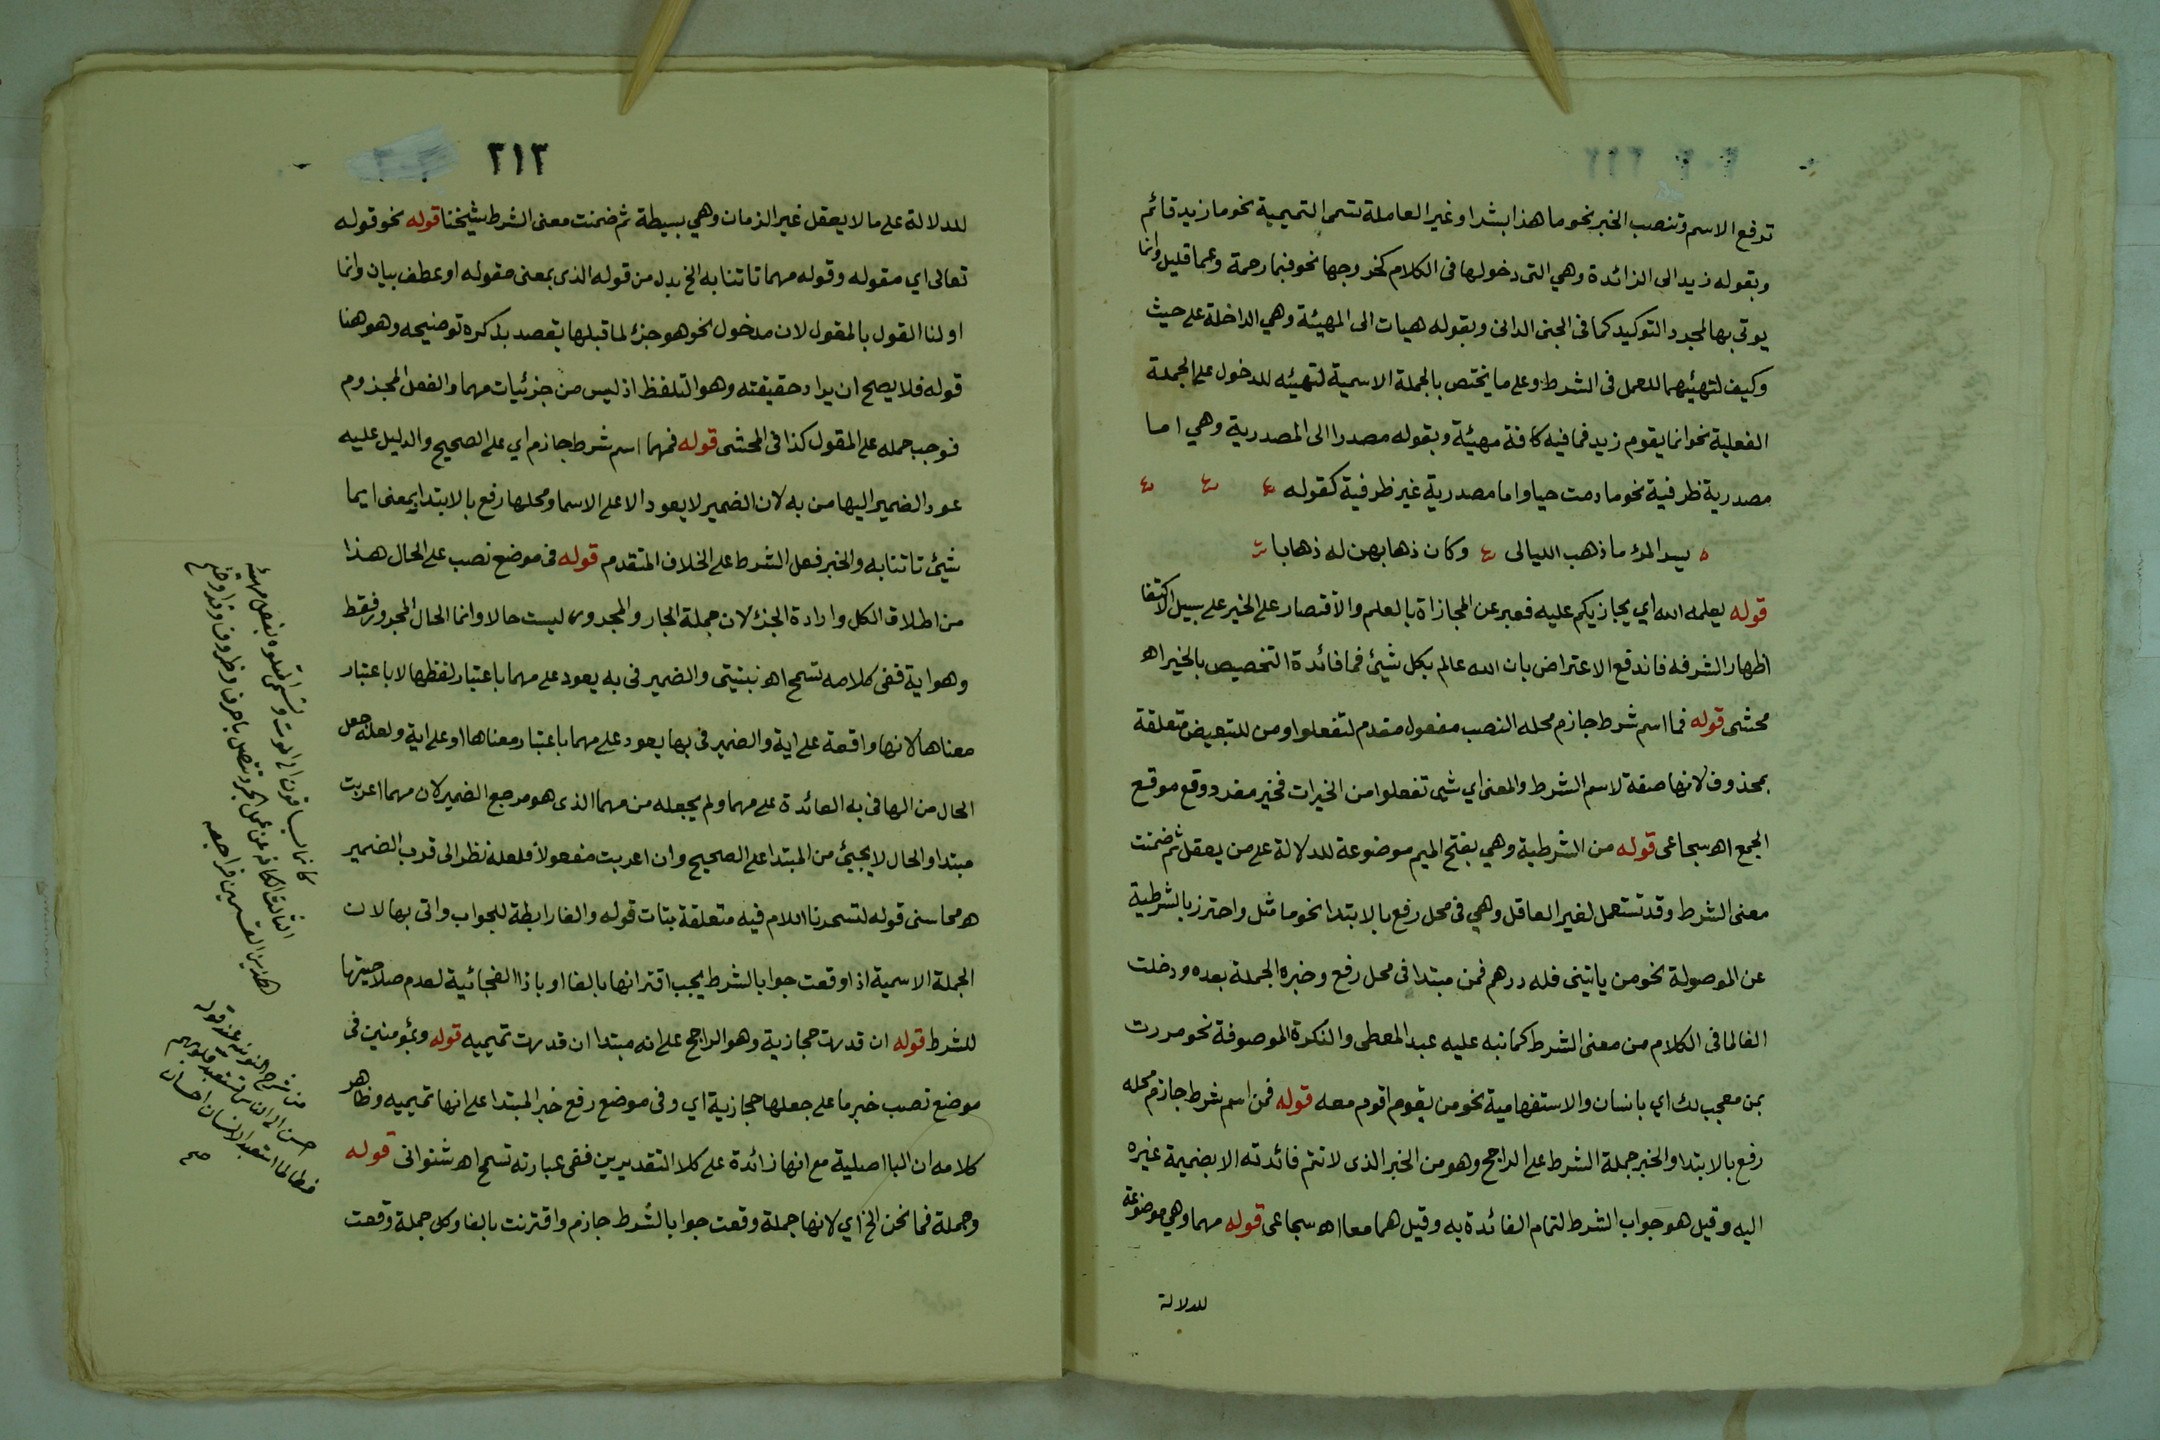 ترفع الاسم وتنصب الخبر نحو ما هذا بشرا وغير العاملة تسمى التميمية نحو ما زيد قائم
وبقوله زيد الى الزائدة وهي التى دخولها فى الكلام كخروجها نحو فبما رحمة وعما قليل وانما
يوتى بها لمجرد التوكيد كما فى الجنى الدانى وبقوله هيات الى المهيئة وهي الداخلة على حيث
وكيف لتهيئهما للعمل فى الشرط وعلى ما يختص بالجملة الاسمية لتهيئه للدخول على الجملة
الفعلية نحو انما يقوم زيد فما فيه كافة مهيئة وبقوله مصدرا الى المصدرية وهي اما
مصدرية ظرفية نحو ما دمت حيا واما مصدرية غير ظرفية كقوله
يسر المرء ما ذهب الليالى وكان ذهابهن له ذهابا
قوله يعلمه الله اي يجازيكم عليه فعبر عن المجازاة بالعلم والاقتصار على الخير على سبيل الاكتفا
اظهار الشرفه فاندفع الاعتراض بان الله عالم بكل شيئ فما فائدة التخصيص بالخير اهـ
محشى قوله فما اسم شرط جازم محله النصب مفعول مقدم لتفعلوا ومن للتبعيض متعلقة
بمحذوف لانها صفة لاسم الشرط والمعنى اي شى تفعلوا من الخيرات فخير مفرد وقع موقع
الجمع اهـ سجاعى قوله من الشرطية وهي بفتح الميم موضوعة للدلالة على من يعقل ثم ضمنت
معنى الشرط وقد تستعمل لغير العاقل وهي فى محل رفع بالابتدا نحو ما مثل واحترز بالشرطية
عن الموصولة نحو من ياتينى فله درهم فمن مبتدا فى محل رفع وخبره الجملة بعده ودخلت
الفا لما فى الكلام من معنى الشرط كما نبه عليه عبد المعطى والنكرة الموصوفة نحو مررت
بمن معجب لك اي بانسان والاستفهامية نحو من يقوم اقوم معه قوله فمن اسم شرط جازم محله
رفع بالابتدا والخبر جملة الشرط على الراجح وهو من الخبر الذى لا تتم فائدته الا بضميمة غيره
اليه وقيل هو جواب الشرط لتمام الفائدة به وقيل هما معا اهـ سجاعى قوله مهما وهي موضوعة
للدلالة
٢١٣
للدلالة على ما لا يعقل غير الزمان وهي بسيطة ثم ضمنت معنى الشرط شيخنا قوله نحو قوله
تعالى اي مقوله وقوله مهما تاتنا به الخ بدل من قوله الذى بمعنى مقوله او عطف بيان وانما
اولنا القول بالمقول لان مدخول نحو هو جزئ لما قبلها يقصد بذكره توضيحه وهو هنا
قوله فلا يصح ان يراد حقيقته وهو التلفظ اذ ليس من جزئيات مهما والفعل المجزوم
فوجب حمله على المقول كذا فى المحشى قوله فمهما اسم شرط جازم اي على الصحيح والدليل عليه
عود الضمير اليها من به لان الضمير لا يعود الا على الاسما ومحلها رفع بالابتدا بمعنى ايما
شيئ تاتنا به والخبر فعل الشرط على الخلاف المتقدم قوله فى موضع نصب على الحال هذا
من اطلاق الكل وارادة الجزئ لان جملة الجار والمجرور ليست حالا وانما الحال المجرور فقط
وهو اية ففى كلامه تسمح اهـ نبتيتى والضمير فى به يعود على مهما باعتبار لفظها لا باعتبار
معناها لانها واقعة على اية والضمير فى بها يعود على مهما باعتبار معناها او على اية ولعله جعل
الحال من الها فى به العائدة على مهما ولم يجعله من مهما الذى هو مرجع الضمير لان مهما اعربت
مبتدا والحال لا يجيئ من المبتدا على الصحيح وان اعربت مفعولا فلعله نظر الى قرب الضمير
هـ محاسنى قوله لتسحرنا اللام فيه متعلقة بتات قوله والفا رابطة للجواب واتى بها لان
الجملة الاسمية اذا وقعت جوابا لشرط يجب اقترانها بالفا او باذا الفجائية لعدم صلاحيتها
للشرط قوله ان قدرت حجازية وهو الراجح على انه مبتدا ان قدرت تميميه قوله وبمومنين فى
موضع نصب خبر ما على جعلها حجازية اي وفى موضع رفع خبر المبتدا على انها تميميه وظاهر
كلامه ان البا اصلية مع انها زائدة على كلا التقديرين ففى عبارته تسمح اهـ شنوانى قوله
وجملة فما نحن الخ اي لانها جملة وقعت جوابا لشرط جازم واقترنت بالفا وكل جملة وقعت
احسن الى الناس تستعبد قلوبهم
فطالما استعبد الانسان احسان
صح